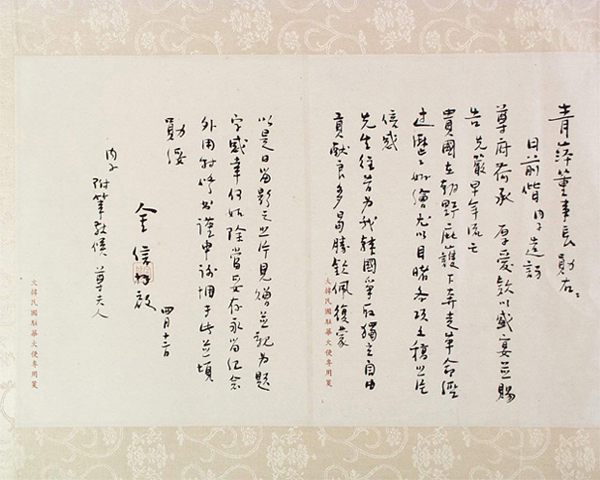 青萍董事長勛右:
日前偕內子造訪
尊府荷承 厚愛款以盛宴並賜
告先嚴早年流亡
貴國在朝野庇護下奔走革命經
過歷歷如繪尤以目睹各項
倍感
先生往昔為我韓國爭取獨立自由
貢獻良多曷勝欽佩復蒙
大韓民國駐華大使專用箋
以是日留影之照片見貽並親為題
字感幸何如除當妥存永留紀念
外用特 謹申謝悃于此並頌
勛綏
金信拜啟
四月十二日
內子
附筆敬候 尊夫人
大韓民國駐華大使專用箋